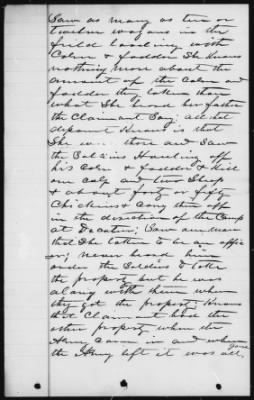 Saw as many as ten or
twelve wagons in the
field loading with
Corn & fodder She Knows
nothing more about the
amount of the Corn and
fodder they taken than
what She heard her father
the Claimant Say; all that
deponent Knows is that
She was there and Saw
the Soldiers Hauling off
his Corn & fodder & Kill
one calf and two Sheep
& about forty or fifty
Chickens & Carry them off
in the direction of the Camp
at Decatur; Saw one man
that She taken to be an offic
er; never heard him
order the Soldiers to take
the property but he was
along with them when
they got the property Knows
that Claimant had the
other property when the
Army came in and when
the Army left it was all gone